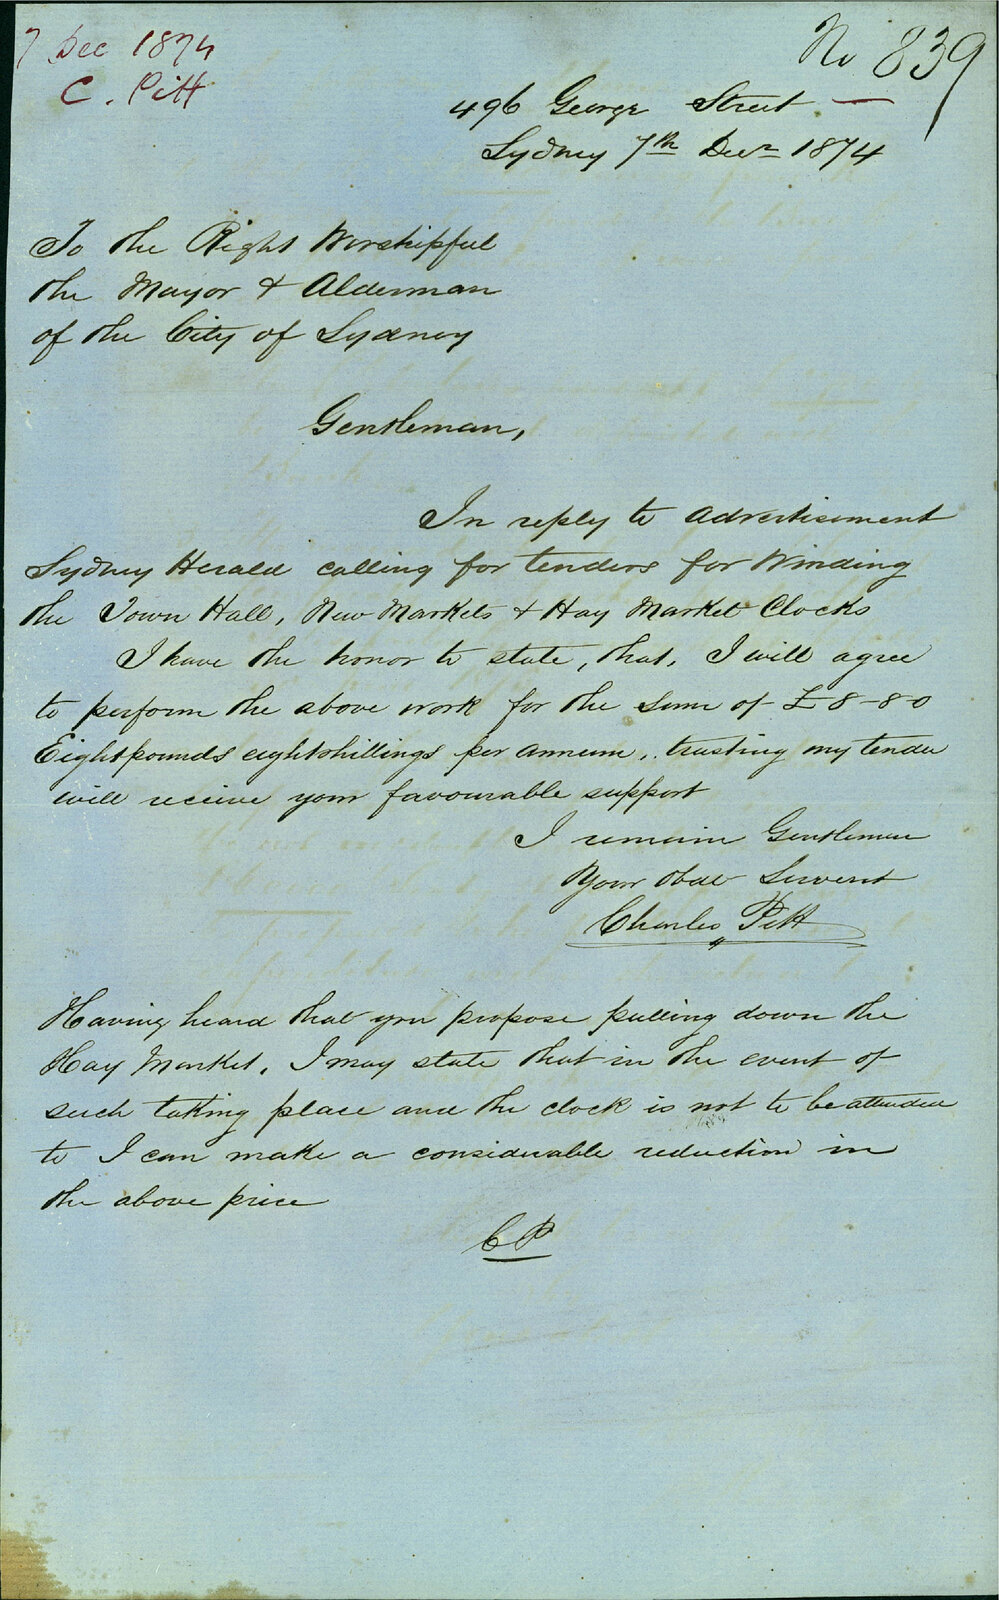 7 Dec 1874
C. Pitt
No 839
496 George Street
Sydney 7th Decr 1874
To the Right Worshipful
the Mayor & Alderman
of the City of Sydney
Gentleman,
In reply to advertisement
Sydney Herald calling for tenders for Winding
the Town Hall, New Markets & Hay Market Clocks
I have the honor to state, that, I will agree
to perform the above work for the sum of £8-8-0
Eight pounds eight shillings per annum, trusting my tender
will receive your favourable support
I remain Gentlemen
Your Obdt Servent
Charles Pitt
Having heard that you propose pulling down the
Hay Market, I may state that in the event of
such taking place and the clock is not to be attended
to I can make a considerable reduction in
the above price
CP